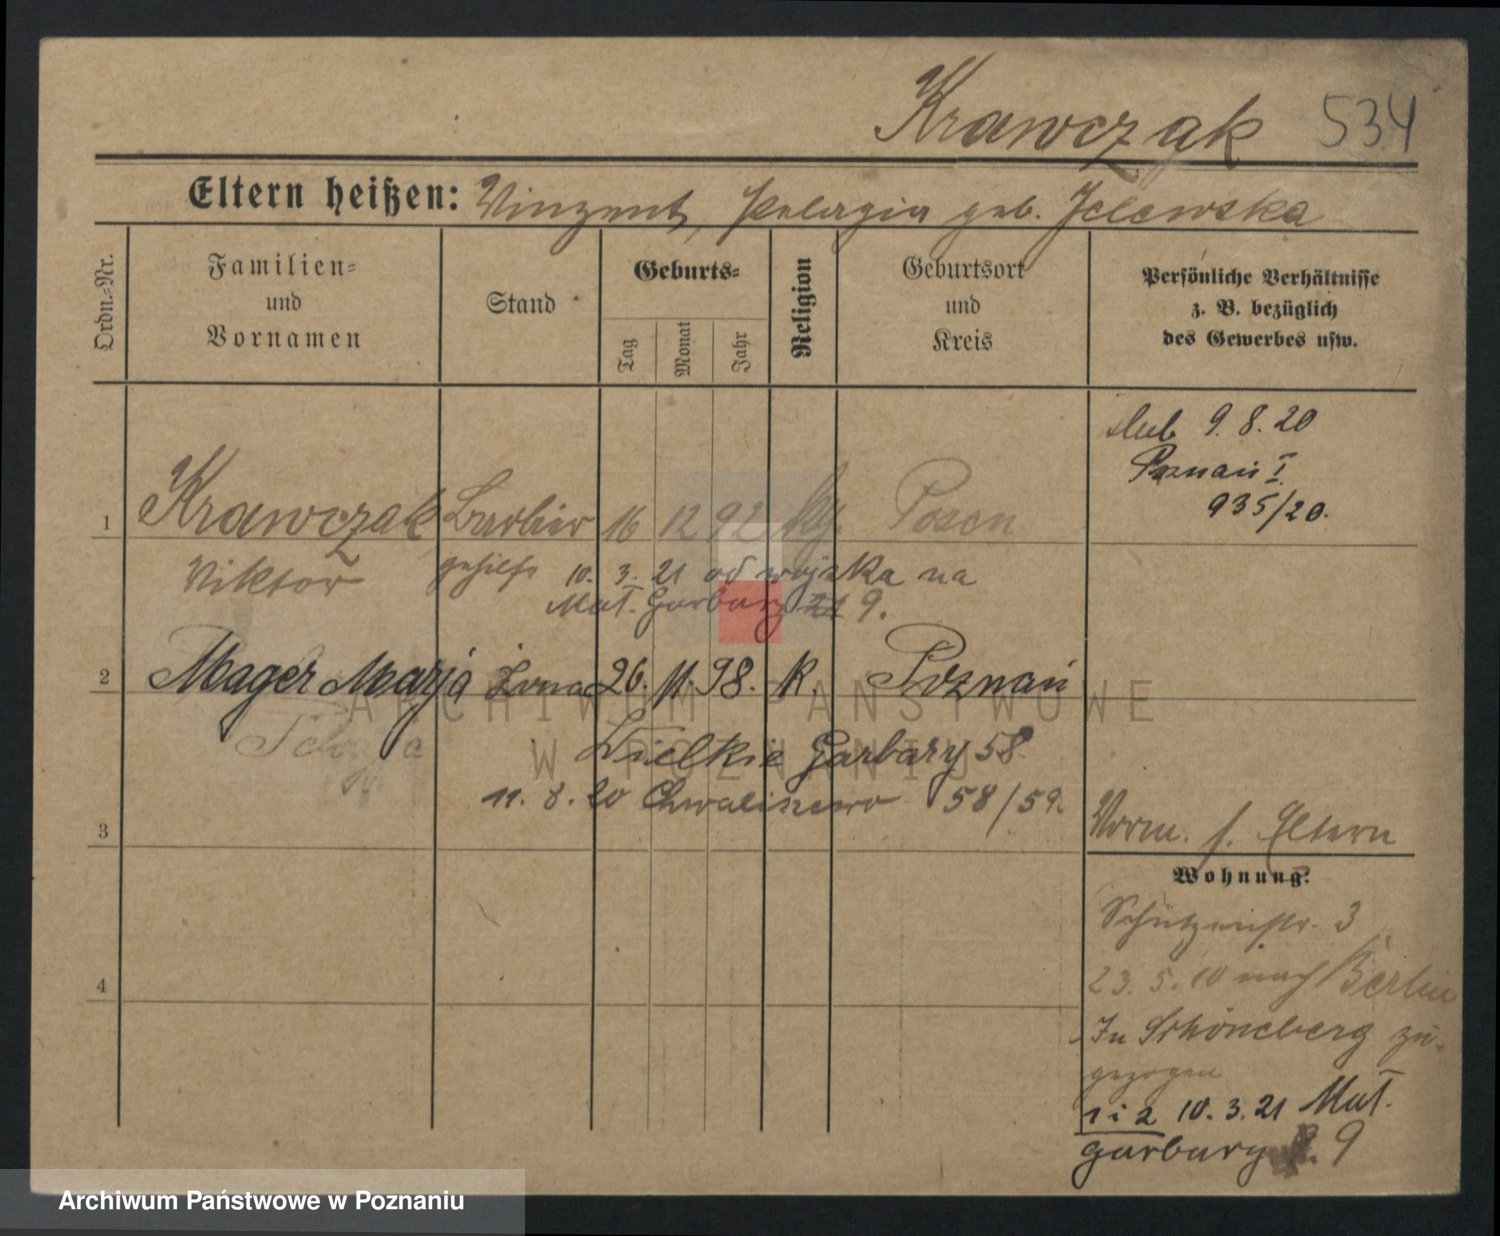 Krawczak 534
Eltern heißen: Vinzent, Pelagia geb. Jelewska
Ordn.-Nr.
Familien-
und
Vornamen
Stand
Geburts-
Tag
Monat
Jahr
Religion
Geburtsort
und
Kreis
Persönliche Verhältnisse
z. B. bezüglich
des Gewerbes usw.
ślub 9.8.20
Poznań I
935/20.
1 Krawczak Barbier 16 12 92 Posen
Viktor gehilfe 10. 3. 21 od wojska na
Mał. Garbary 9.
2 Mager Marja żona 26. 11. 98. K Poznań
Pelagia
Wielkie Garbary 58
11. 8. 20 Chwaliszewo 58/59.
3
Vorm. s. Eltern
Wohnung:
Schützenstr. 3
23. 5. 10 nach Berlin
In Schöneberg zu-
gezogen
4
1 i 2 10. 3. 21 Mał.
garbary 9
ARCHIWUM PAŃSTWOWE
W POZNANIU
Archiwum Państwowe w Poznaniu